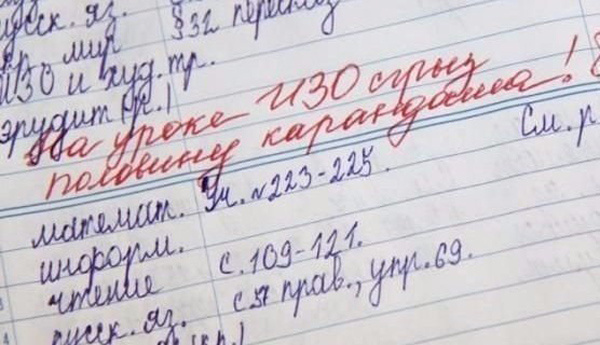 русск. яз. §32 пересказ
окр. мир
ИЗО и худ. тр.
эрудит (гр.)
На уроке ИЗО сгрыз
половину карандаша!
См. р.
математ. Уч. №223-225.
информ.
чтение с. 109-121.
русск. яз. с 37 прав., упр. 69.